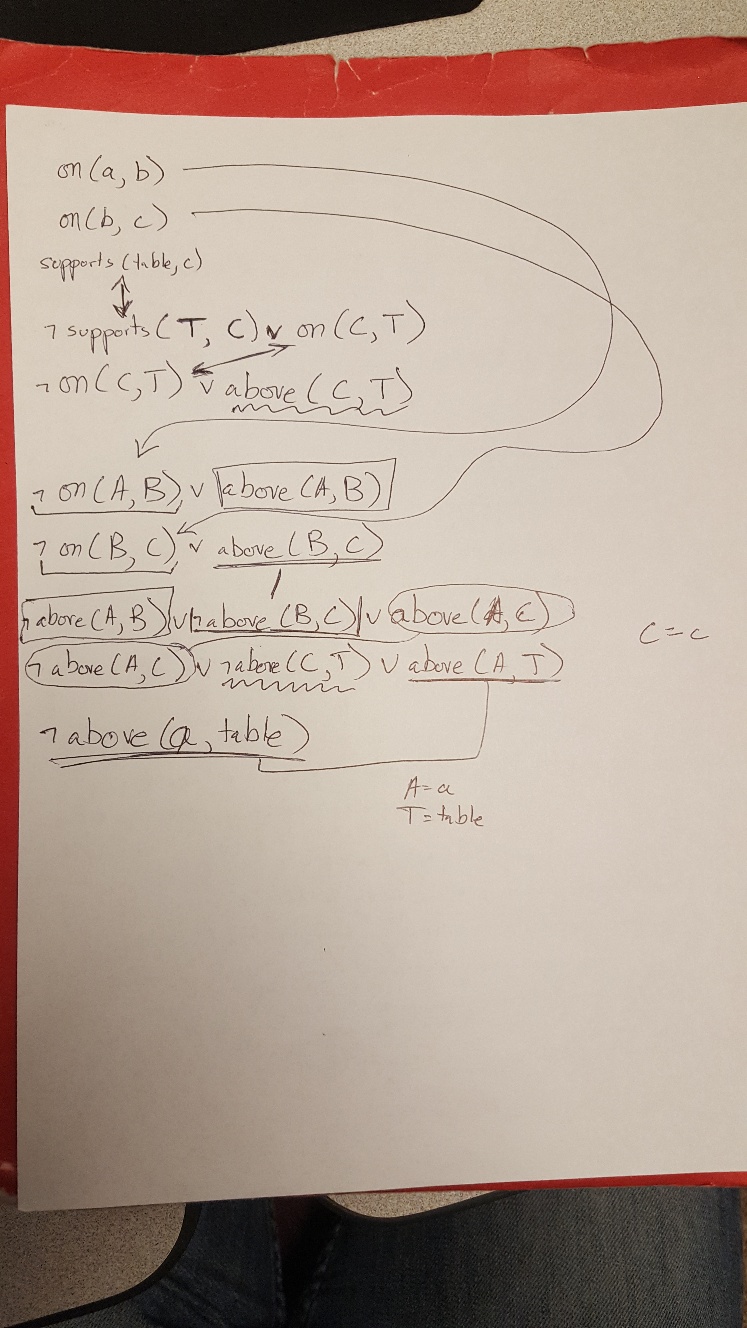 on(a, b)
on(b, c)
supports(table, c)
¬ supports(T, C) ∨ on(C, T)
¬ on(C, T) ∨ above(C, T)
¬ on(A, B) ∨ above(A, B)
¬ on(B, C) ∨ above(B, C)
¬ above(A, B) ∨ ¬ above(B, C) ∨ above(A, C)
C = c
¬ above(A, C) ∨ ¬ above(C, T) ∨ above(A, T)
¬ above(a, table)
A = a
T = table